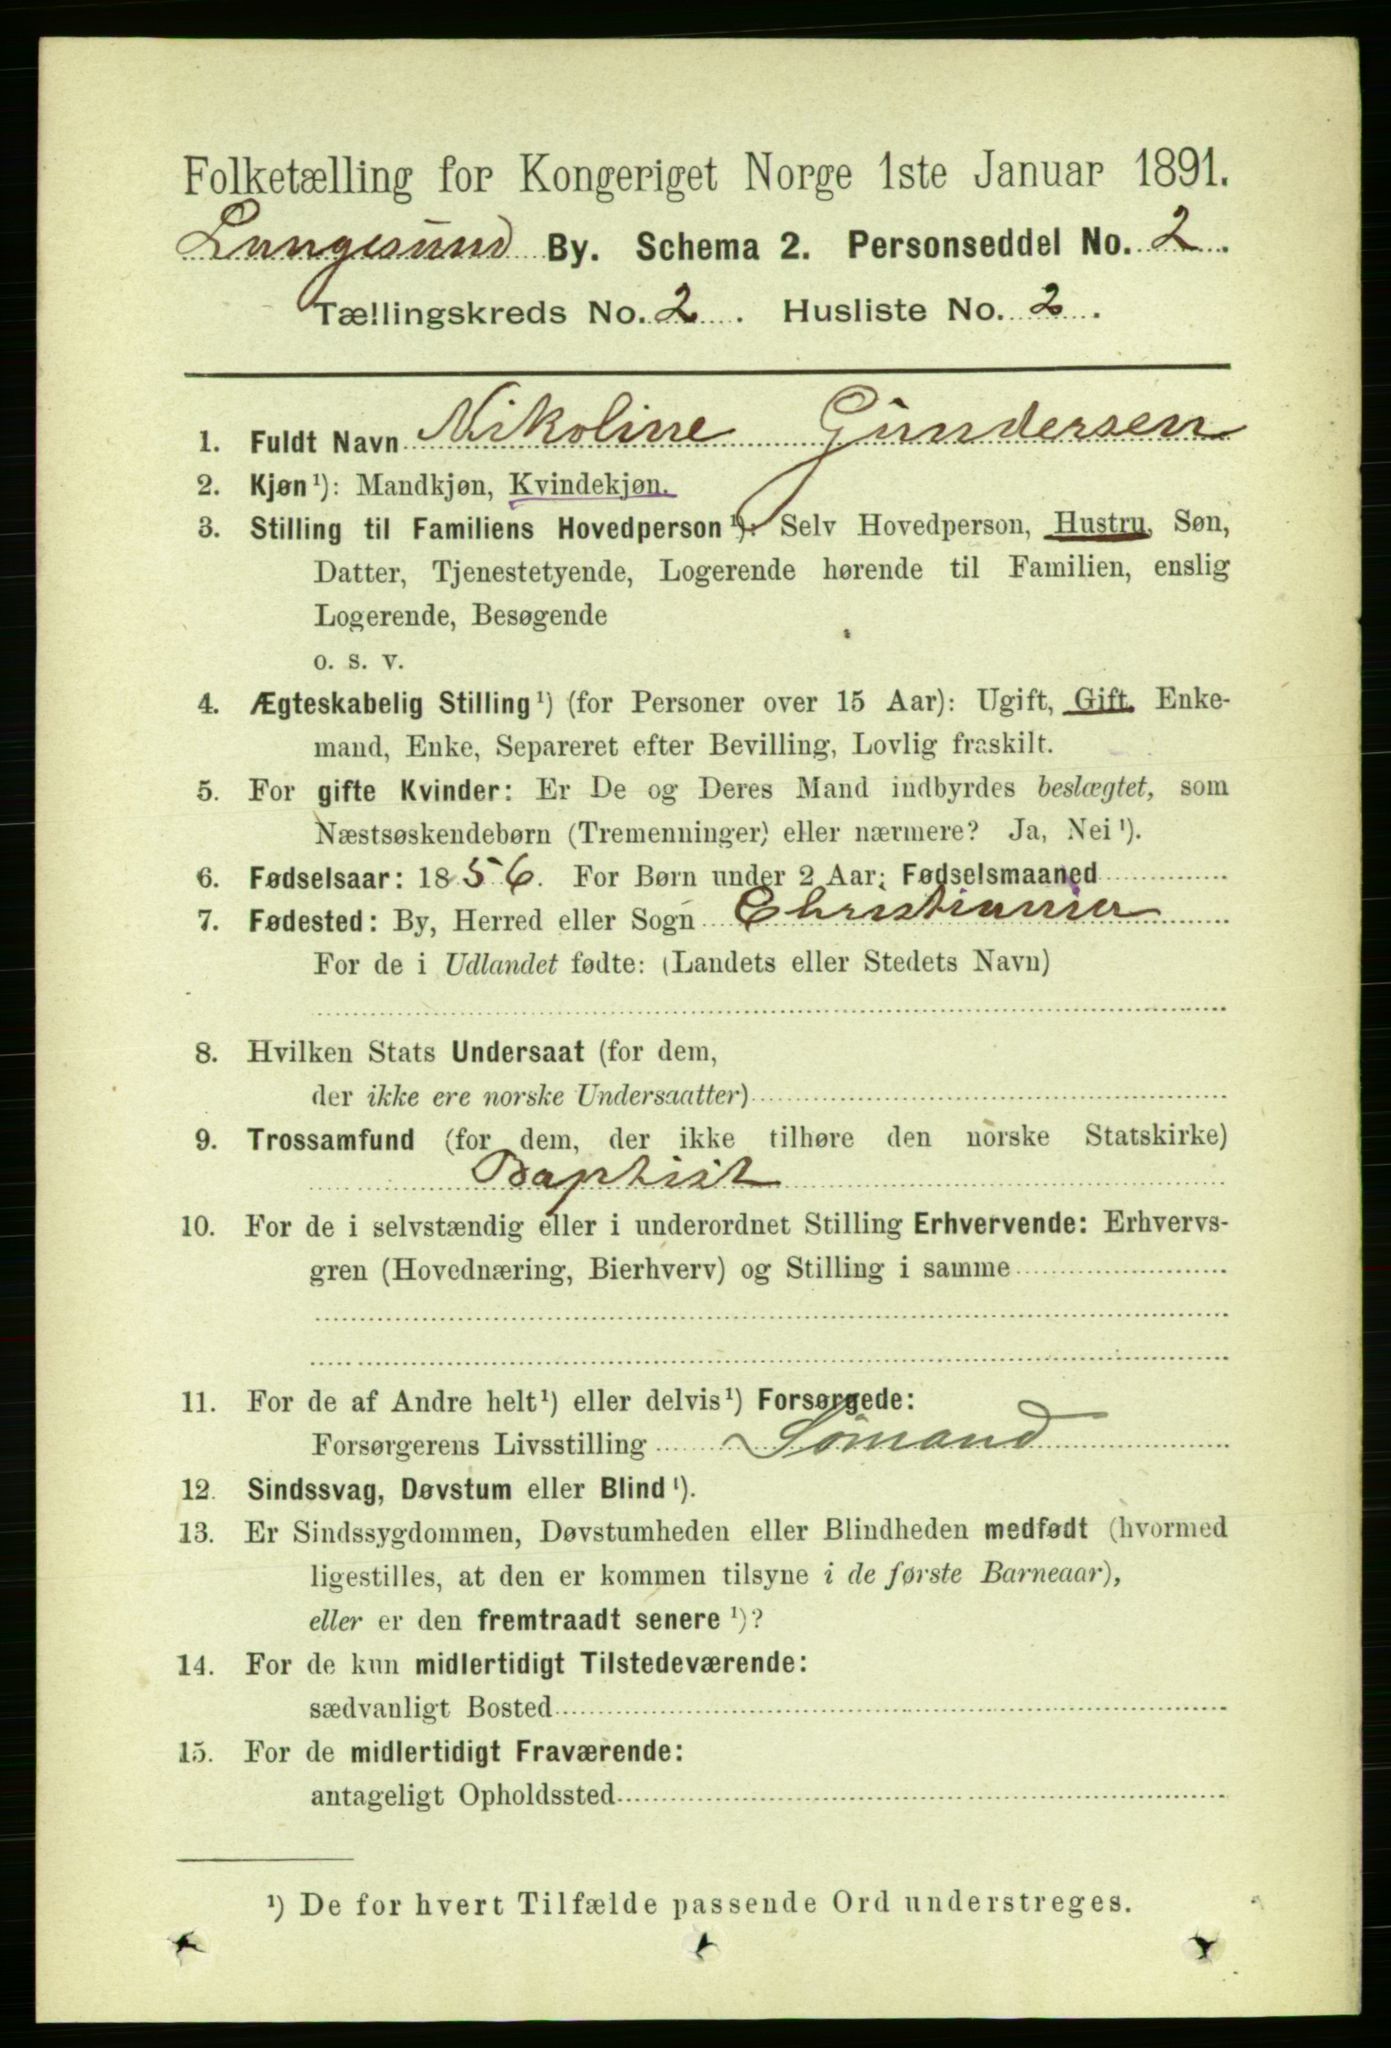 Folketælling for Kongeriget Norge 1ste Januar 1891.
Langesund By. Schema 2. Personseddel No. 2.
Tællingskreds No. 2. Husliste No. 2.
1. Fuldt Navn Nikoline Gundersen
2. Kjøn¹): Mandkjøn, Kvindekjøn.
3. Stilling til Familiens Hovedperson¹): Selv Hovedperson, Hustru, Søn,
Datter, Tjenestetyende, Logerende hørende til Familien, enslig
Logerende, Besøgende
o. s. v.
4. Ægteskabelig Stilling¹) (for Personer over 15 Aar): Ugift, Gift, Enke-
mand, Enke, Separeret efter Bevilling, Lovlig fraskilt.
5. For gifte Kvinder: Er De og Deres Mand indbyrdes beslægtet, som
Næstsøskendebørn (Tremenninger) eller nærmere? Ja, Nei¹).
6. Fødselsaar: 1856. For Børn under 2 Aar: Fødselsmaaned
7. Fødested: By, Herred eller Sogn Christiania
For de i Udlandet fødte: (Landets eller Stedets Navn)
8. Hvilken Stats Undersaat (for dem,
der ikke ere norske Undersaatter)
9. Trossamfund (for dem, der ikke tilhøre den norske Statskirke)
Baptist
10. For de i selvstændig eller i underordnet Stilling Erhvervende: Erhvervs-
gren (Hovednæring, Bierhverv) og Stilling i samme
11. For de af Andre helt¹) eller delvis¹) Forsørgede:
Forsørgerens Livsstilling Sømand
12. Sindssvag, Døvstum eller Blind¹).
13. Er Sindssygdommen, Døvstumheden eller Blindheden medfødt (hvormed
ligestilles, at den er kommen tilsyne i de første Barneaar),
eller er den fremtraadt senere¹)?
14. For de kun midlertidigt Tilstedeværende:
sædvanligt Bosted
15. For de midlertidigt Fraværende:
antageligt Opholdssted
¹) De for hvert Tilfælde passende Ord understreges.